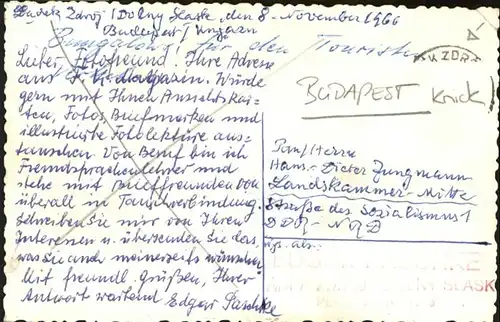 Zdrój / Dolny Slask, den 8. November 1966
Budapest / Ungarn
Bungalows für den Touristen
Lieber Fotofreund! Ihre Adresse
aus Magazin. Würde
gern mit Ihnen Ansichtskar=
ten, Fotos, Briefmarken und
illustrierte Fotolektüre aus=
tauschen. Von Beruf bin ich
Fremdsprachenlehrer und
stehe mit Brieffreunden von
überall in Tauschverbindung.
Schreiben Sie mir von Ihren
Interessen u. übersenden Sie das,
was Sie auch meinerseits wünschen.
Mit freundl. Grüßen, Ihrer
Antwort wartend Edgar
ZDR
BUDAPEST Knick!
Pan/Herrn
Hans-Dieter Jungmann
Landskammer-Mitte
Straße des Sozialismus 1
DDR - NRD
SLASK